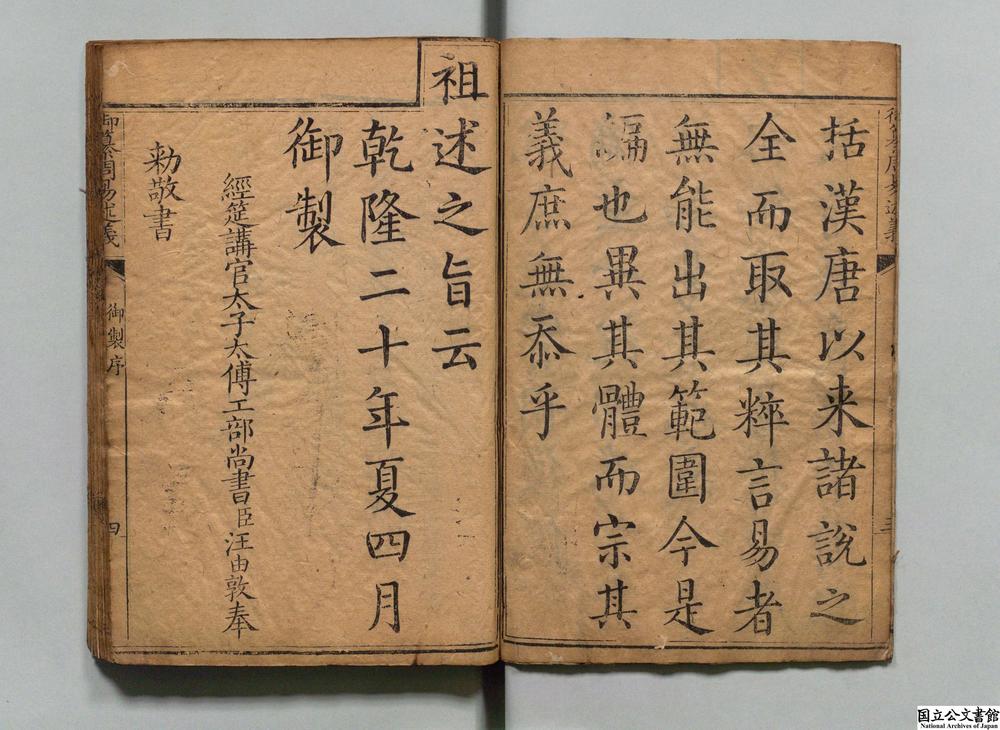 括漢唐以来諸說之
全而取其粹言易者
無能出其範圍今是
編也異其體而宗其
義庶無忝乎
祖述之旨云
乾隆二十年夏四月
御製
經筵講官太子太傅工部尚書臣汪由敦奉
勅敬書
御纂周易述義
御製序
四
国立公文書館
National Archives of Japan